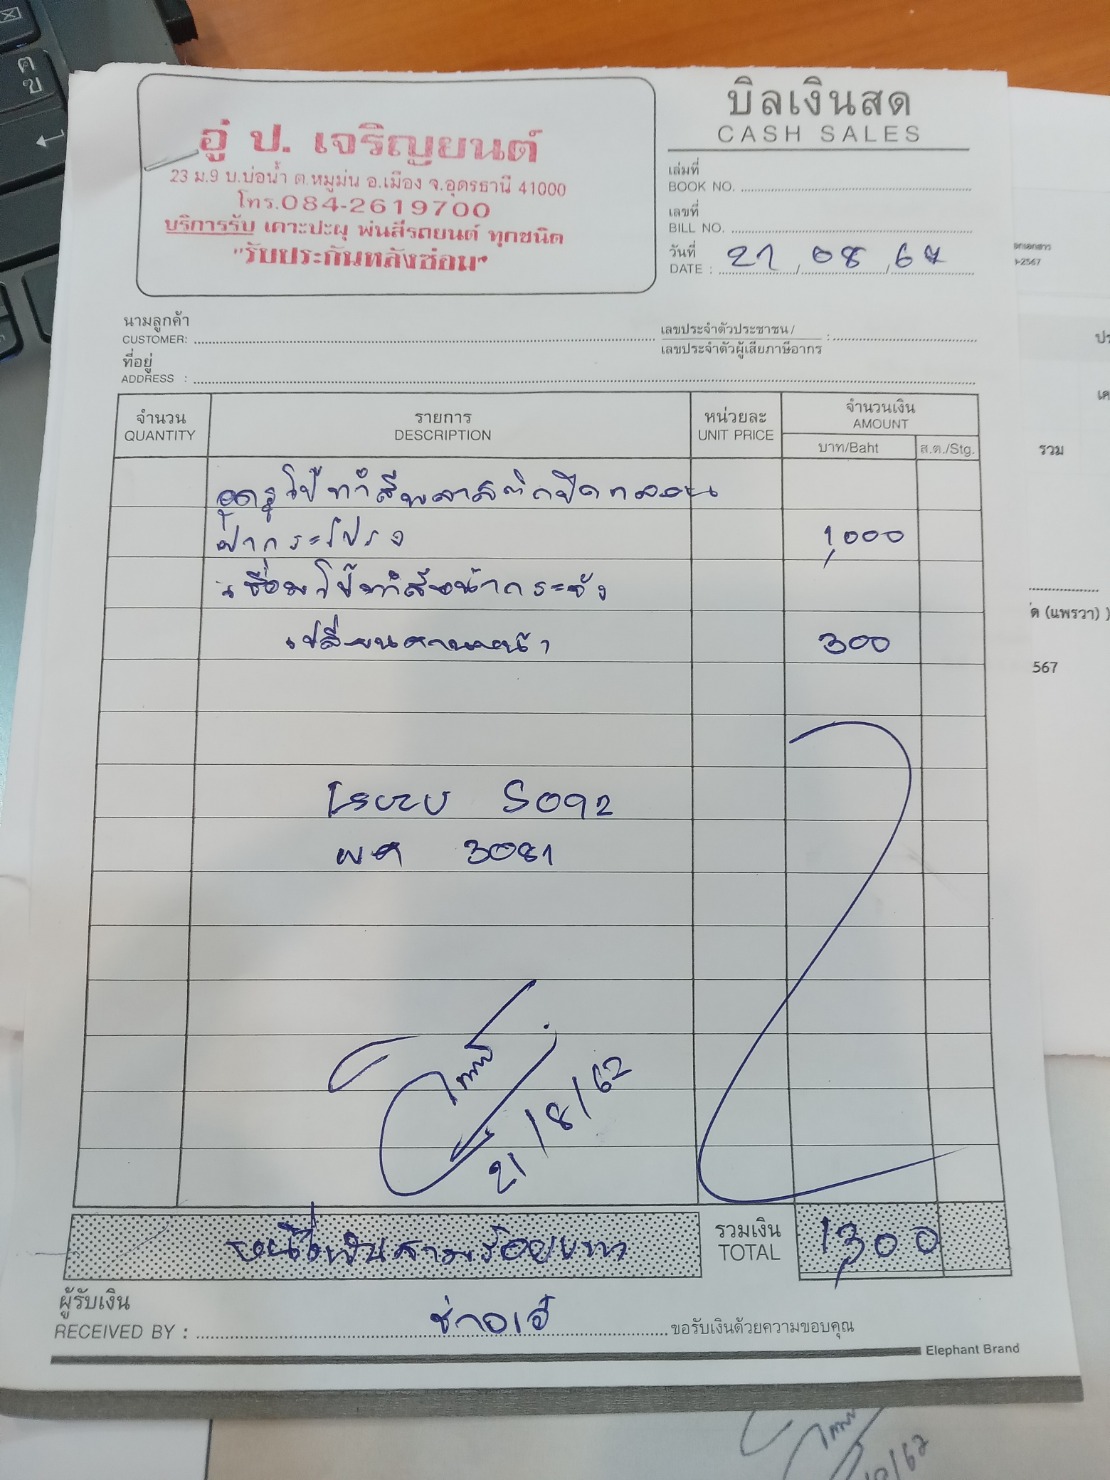 บิลเงินสด
CASH SALES
อู่ ป. เจริญยนต์
23 ม.9 บ.บ่อน้ำ ต.หมูม่น อ.เมือง จ.อุดรธานี 41000
โทร.084-2619700
บริการรับ เคาะปะผุ พ่นสีรถยนต์ ทุกชนิด
"รับประกันหลังซ่อม"
เล่มที่
BOOK NO.
เลขที่
BILL NO.
วันที่
DATE : 21 / 08 / 67
นามลูกค้า
CUSTOMER:
เลขประจำตัวประชาชน /
เลขประจำตัวผู้เสียภาษีอากร :
ที่อยู่
ADDRESS :
จำนวน QUANTITY
รายการ DESCRIPTION
หน่วยละ UNIT PRICE
จำนวนเงิน AMOUNT
บาท/Baht ส.ต./Stg.
ฝากระโปรง 1,000
เชื่อมโป๊ทำสีหน้ากระจัง
เปลี่ยนคานหน้า 300
Isuzu S092
ผค 3081
21/8/67
หนึ่งพันสามร้อยบาท
รวมเงิน
TOTAL 1,300
ผู้รับเงิน
RECEIVED BY : ช่างเอ๋ ขอรับเงินด้วยความขอบคุณ
Elephant Brand
รวม
ด (แพรวา) )
567